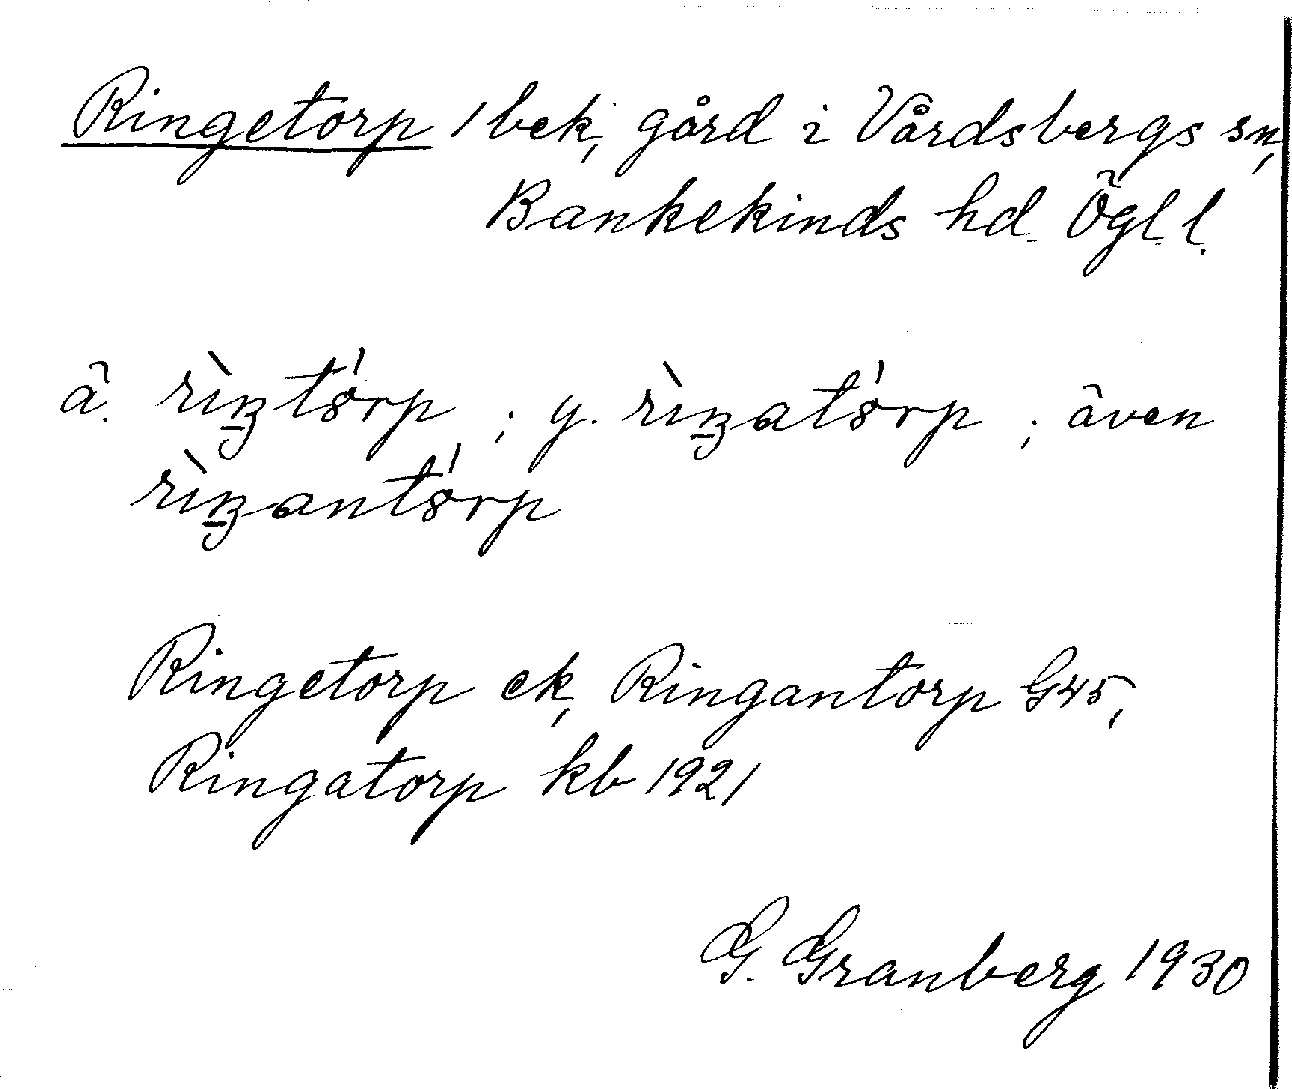 Ringetorp 1 bek, gård i Vårdsbergs sn,
Bankekinds hd. Ögl. l.
ä. rìŋtó̤rp, ; y. rìŋató̤rp ; även
rìŋantó̤rp
Ringetorp ek, Ringantorp G45,
Ringatorp kb 1921
G. Granberg 1930